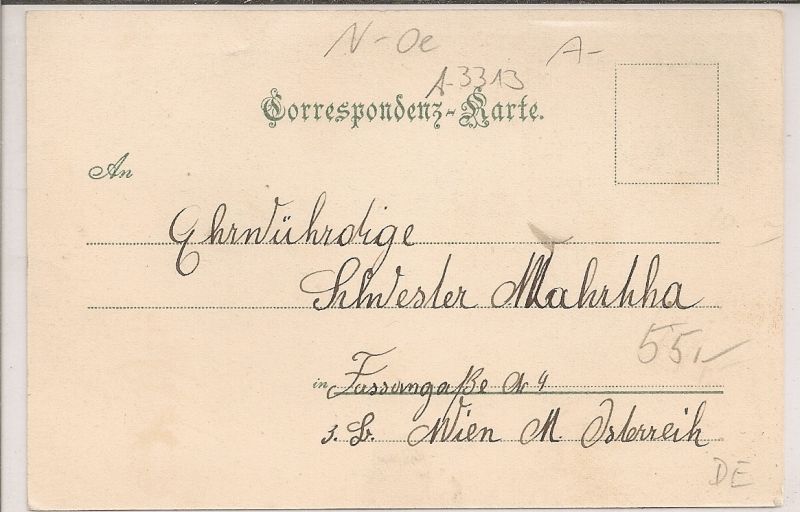 N-Oe A-
A-3313
Correspondenz-Karte.
An
Ehrwührdige
Schwester Mahrtha
55,-
in Fasangaße № 4
3. B. Wien N. Östereich
DE